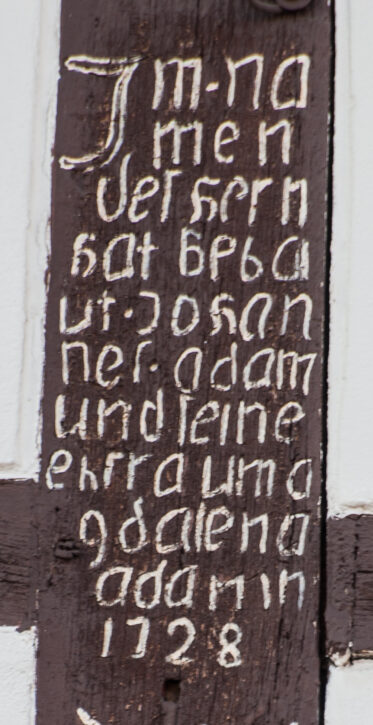 Im·na
men
der hern
hat beba
ut·Johan
nes·adam
und seine
ehfrau ma
gdalena
adamin
1728